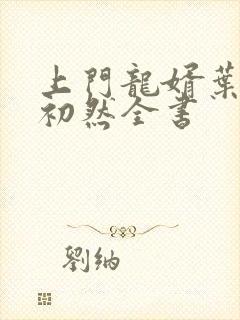 上門龍婿葉
初然全書
劉納